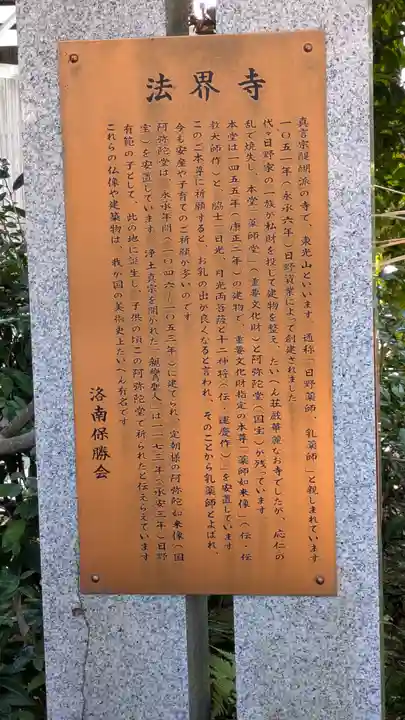 法界寺
真言宗醍醐派の寺で、東光山といいます。通称「日野薬師、乳薬師」と親しまれています
一〇五一年(永承六年)日野資業によって創建されました。
代々日野家の一族が私財を投じて建物を整え、たいへん荘厳華麗なお寺でしたが、応仁の
乱で焼失し、本堂「薬師堂」(重要文化財)と阿弥陀堂(国宝)が残っています
本堂は一四五五年(康正二年)の建物で、重要文化財指定の本尊「薬師如来像」(伝・伝
教大師作)と、脇士「日光、月光両菩薩と十二神将(伝・運慶作)」を安置しています
このご本尊に祈願すると、お乳の出が良くなると言われ、そのことから乳薬師とよばれ、
今も安産や子育てのご祈願が多いのです
阿弥陀堂は、永承年間(一〇四六〜一〇五三年)に建てられ、定朝様の阿弥陀如来像(国
宝)を安置しています。浄土真宗を開かれた「親鸞聖人」は一一七三年(承安三年)日野
有範の子として、此の地に誕生し、子供の頃この阿弥陀堂で祈られたと伝えらえています
これらの仏像や建築物は、我が国の美術史上たいへん有名です
洛南保勝会